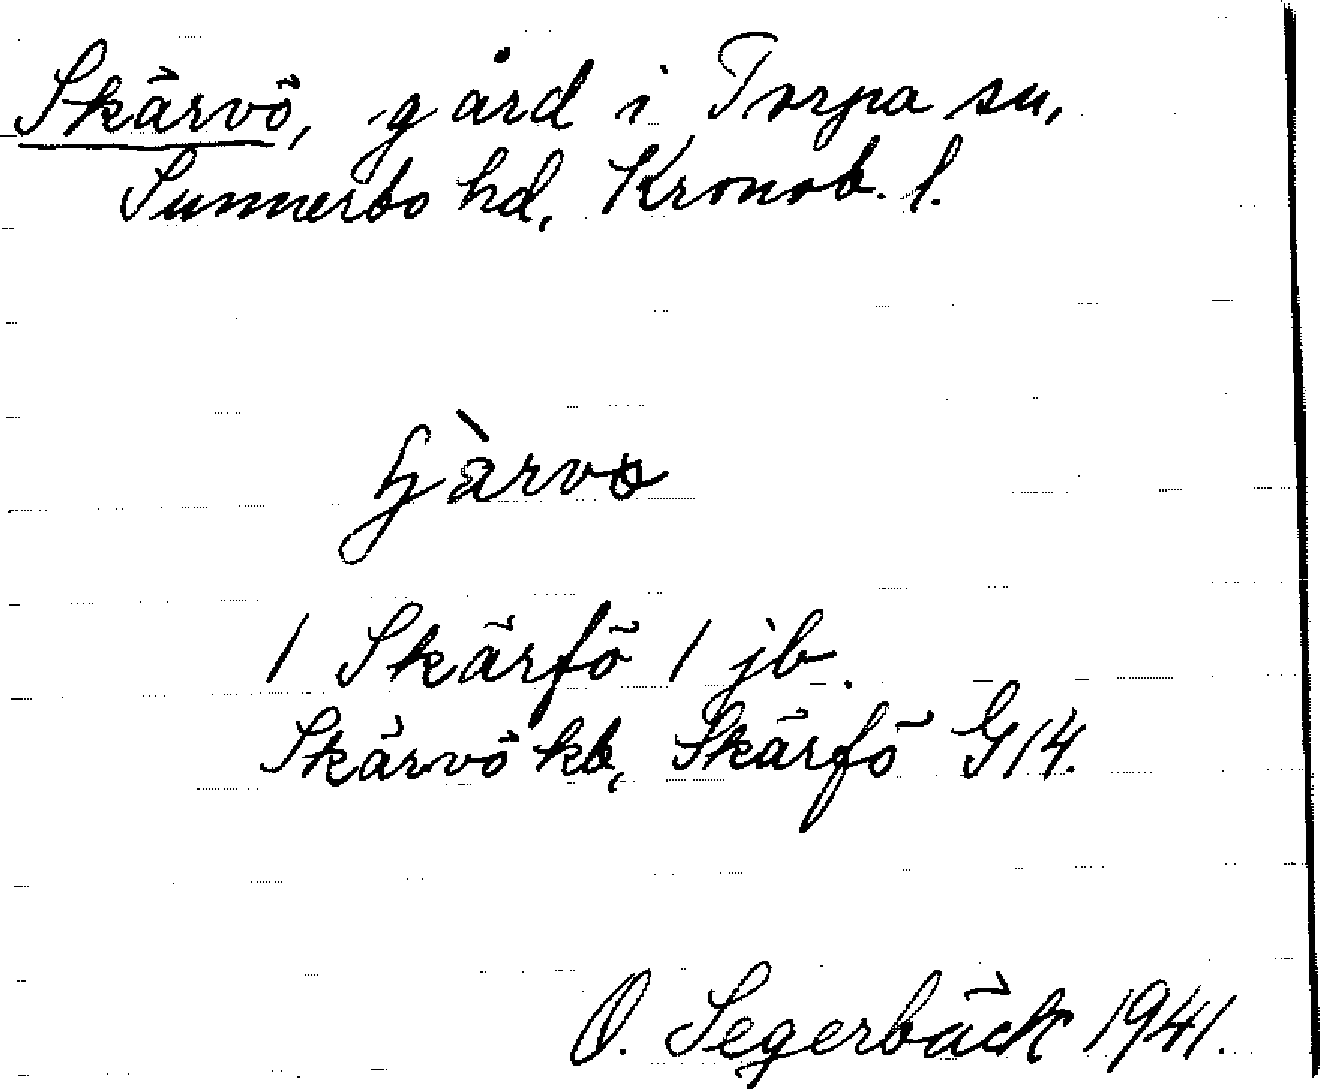 Skärvö, gård i Torpa sn,
Sunnerbo hd, Kronob. l.
/ Skärfö / jb.
Skärvö kb, Skärfö G14.
O. Segerbäck 1941.